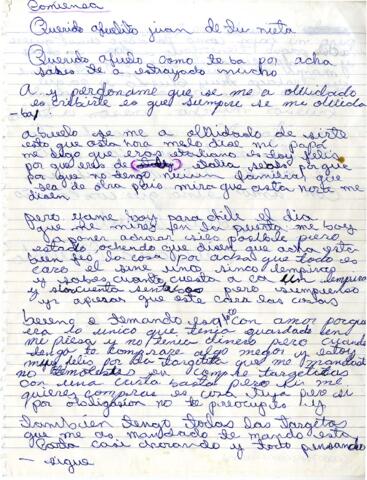 Comiensa
Querido Abuelito juan de tu nieta
Querido Abuelo como te ba por acha
sabes te a estrañado mucho
A y perdoname que se me a olbidado
escribirte es que siempre se me olbida
abuelo se me a olbidado de sirte
esto que asta hora me lo dise mi papá
me dijo que eras italiano estoy felis
por que eres de Italia sabes porque
por que no tengo niuna familia que
sea de otro pais mira que asta norte me
disen
pero yame boy para chile el dia
que me mires en la puerta me boy
a poner adorar sies posible pero
estado oyendo que disen que acha esta
bien feo la cosa por acha que todo es
caro el sine uno sinco lempiras
y sabes cuanto cuesta a ca un lempira
y sincuenta sentabos pero supuesto
y apesar que este cara las cosas
te mando esto con amor porque
sea lo unico que tenia guardado en
mi piesa y no tenia dinero pero cuando
tengo te comprare algo mejor y estoy
muy felis por la targeta que me mandaste
no te molestes en comprar targetitas
con una carta basta pero si me
quieres comprar es cosa tuya pero si
por obligasion no te preocupes
tambien tengo todas las targetas
que me as mandado te mando esta
carta casi chorando y todo pensando
- sigue